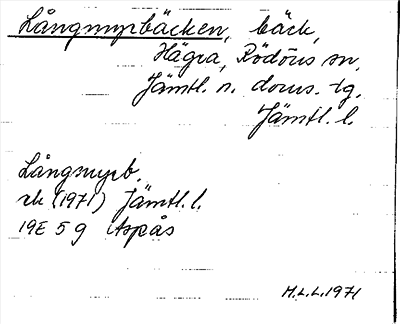 Långmyrbäcken, bäck,
Hägra, Rödöns sn,
Jämtl. n. doms. tg.
Jämtl. l.
Långmyrb.
rk (1971) Jämtl. l.
19E 5 g Aspås
M.L.L. 1971